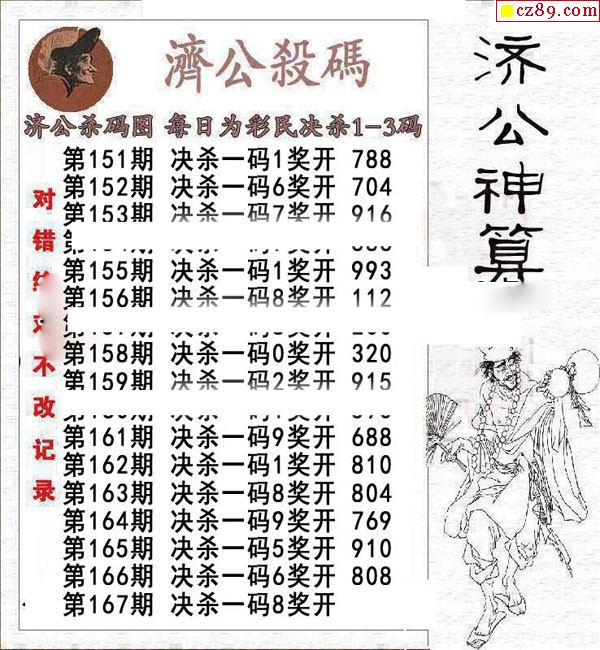 cz89.com
濟公殺碼
济公神算
济公杀码图 每日为彩民决杀1-3码
对错绝对不改记录
第151期 决杀一码1奖开 788
第152期 决杀一码6奖开 704
第153期 决杀一码7奖开 916
第155期 决杀一码1奖开 993
第156期 决杀一码8奖开 112
第158期 决杀一码0奖开 320
第159期 决杀一码2奖开 915
第161期 决杀一码9奖开 688
第162期 决杀一码1奖开 810
第163期 决杀一码8奖开 804
第164期 决杀一码9奖开 769
第165期 决杀一码5奖开 910
第166期 决杀一码6奖开 808
第167期 决杀一码8奖开